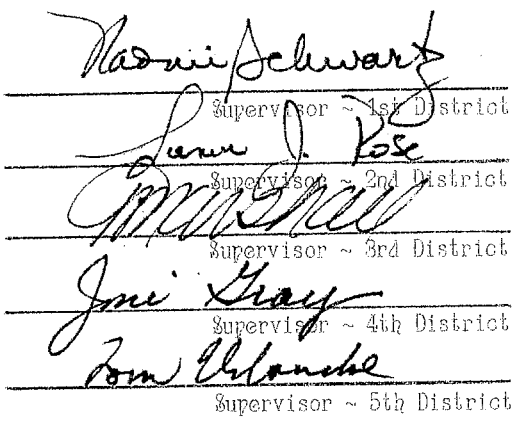 Naomi Schwartz
Supervisor ~ 1st District
Susan J. Rose
Supervisor ~ 2nd District
Marshall
Supervisor ~ 3rd District
Joni Gray
Supervisor ~ 4th District
Tom Urbanske
Supervisor ~ 5th District